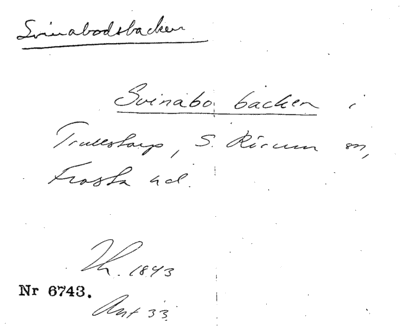 Svinabodsbacken
Svinabo backen i
Trulstorp, S. Rörum sn,
Frosta hd.
Th. 1843
Nr 6743.
Ant 33